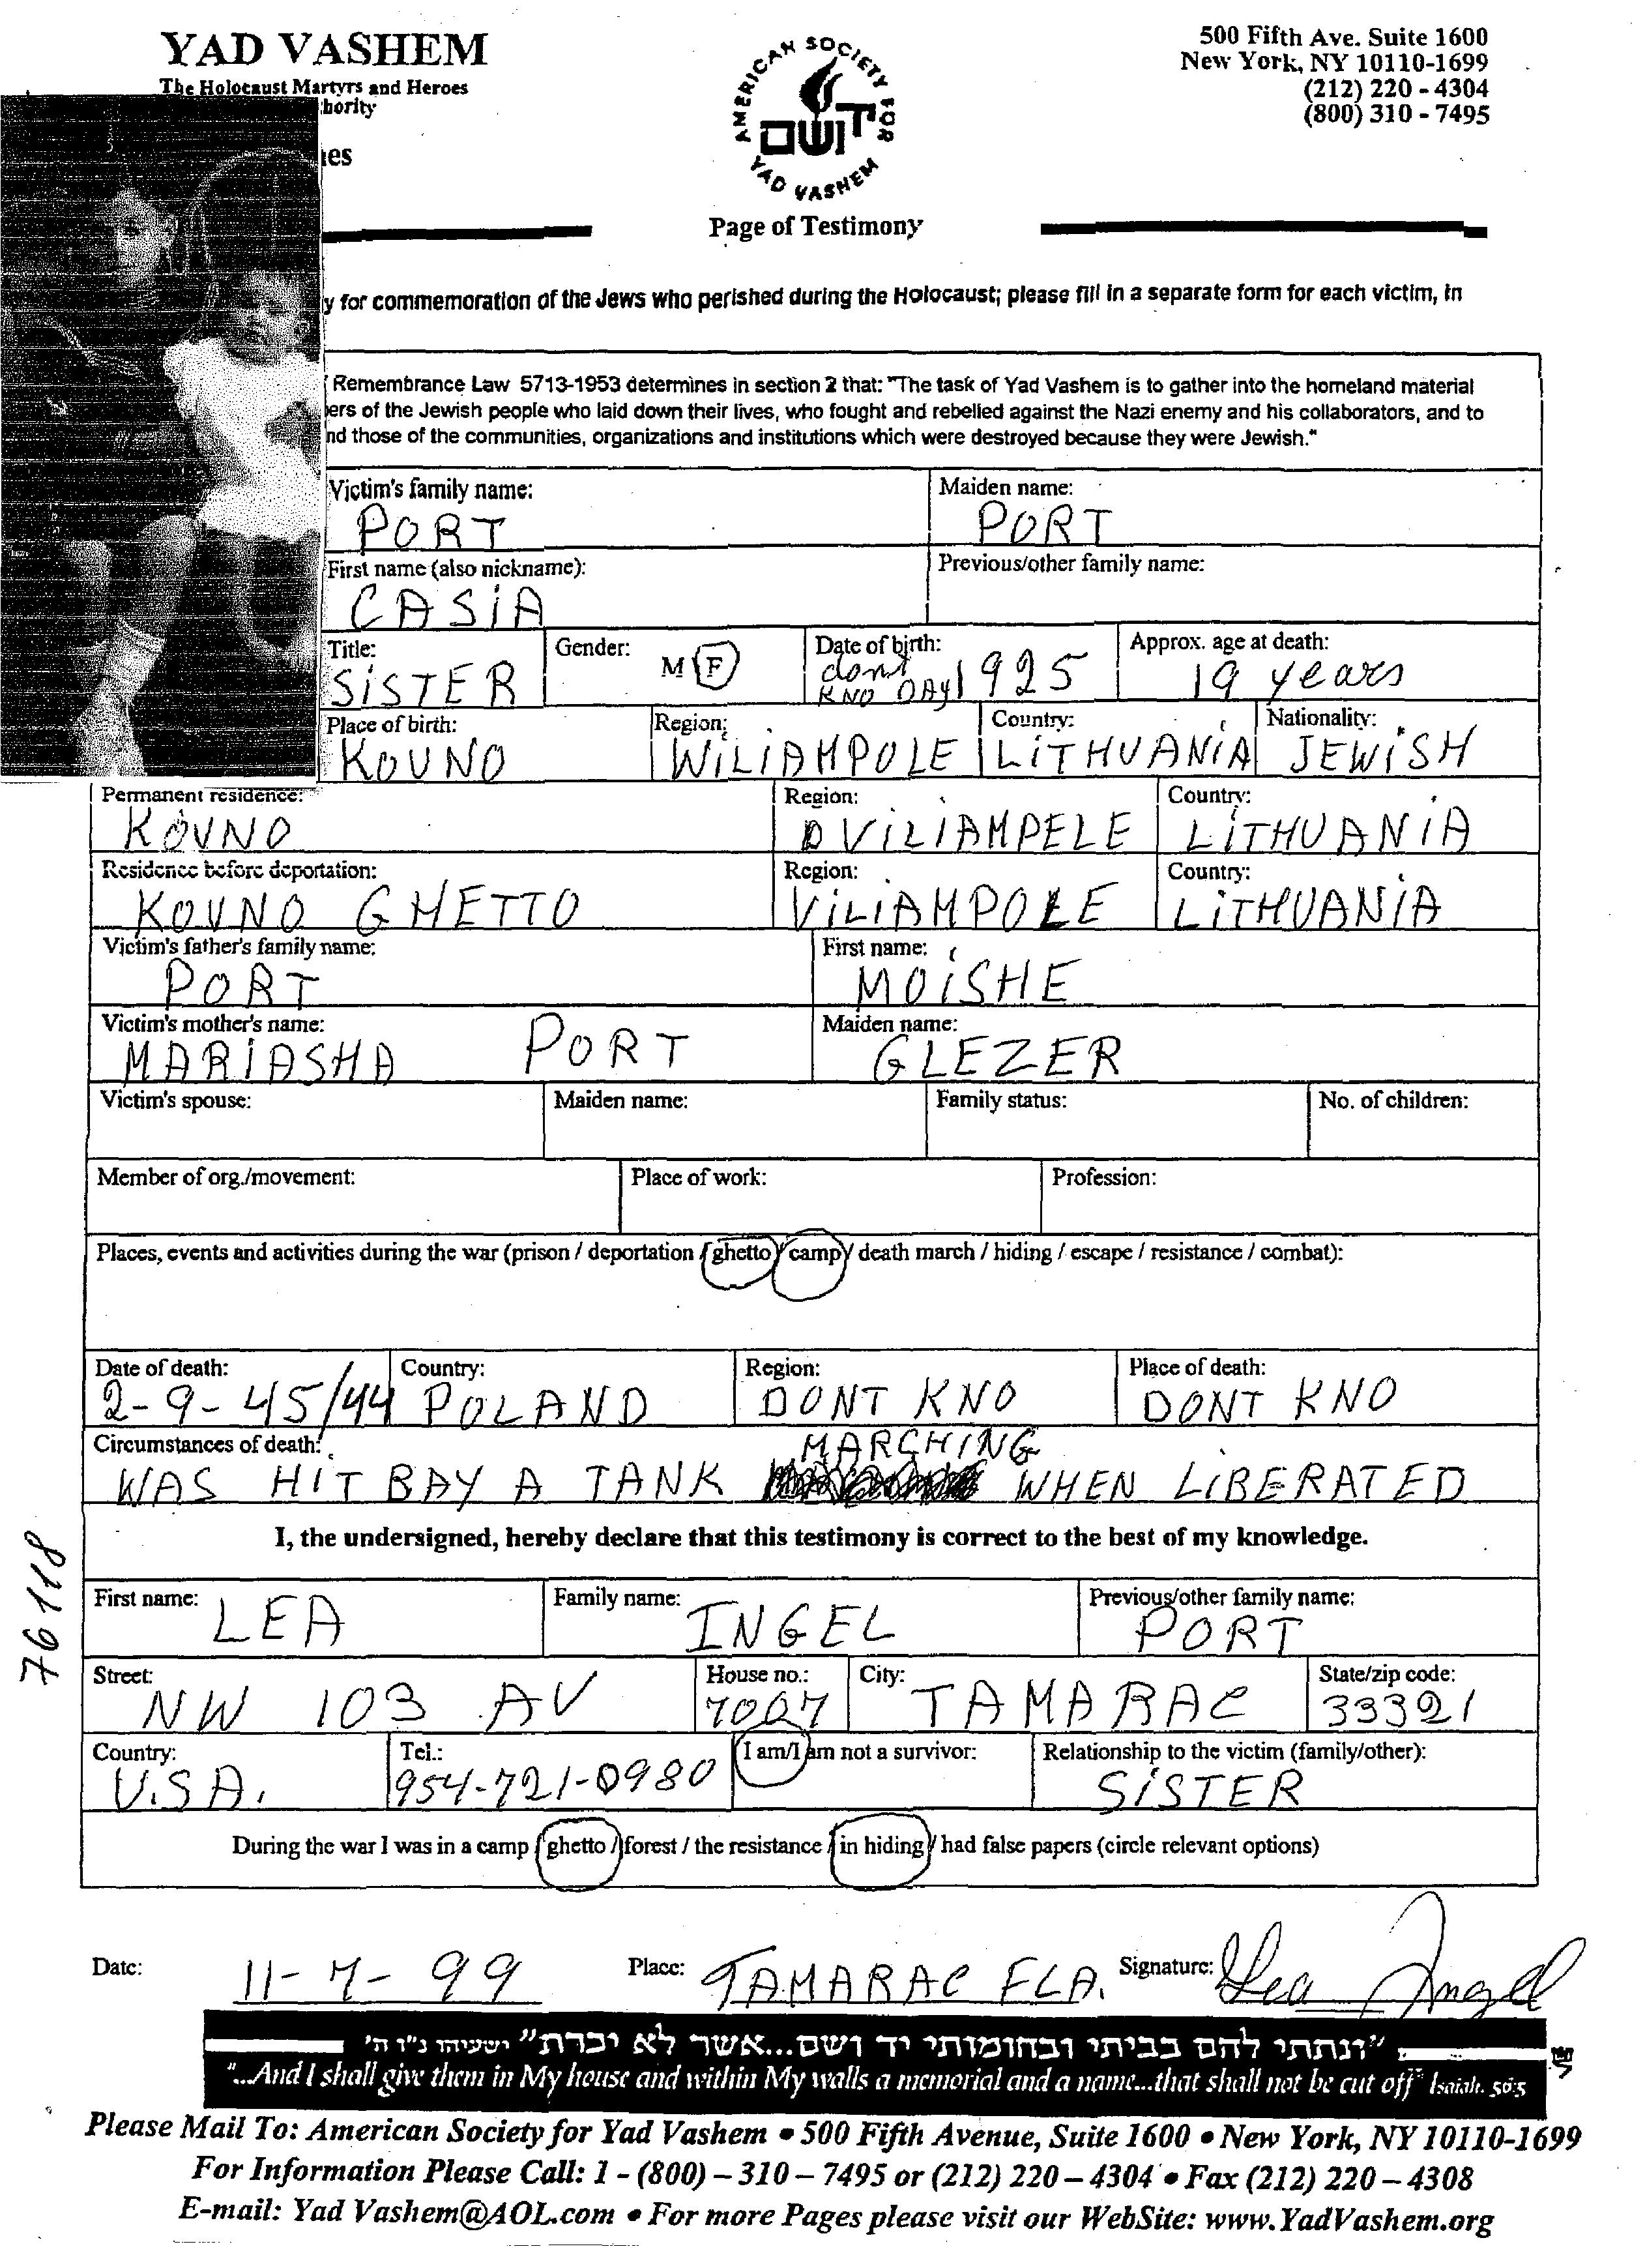 YAD VASHEM
The Holocaust Martyrs and Heroes
hority
es
AMERICAN SOCIETY FOR
יד ושם
YAD VASHEM
Page of Testimony
500 Fifth Ave. Suite 1600
New York, NY 10110-1699
(212) 220 - 4304
(800) 310 - 7495
y for commemoration of the Jews who perished during the Holocaust; please fill in a separate form for each victim, in
Remembrance Law 5713-1953 determines in section 2 that: "The task of Yad Vashem is to gather into the homeland material
ers of the Jewish people who laid down their lives, who fought and rebelled against the Nazi enemy and his collaborators, and to
nd those of the communities, organizations and institutions which were destroyed because they were Jewish."
Victim's family name: Maiden name:
PORT PORT
First name (also nickname): Previous/other family name:
CASiA
Title: Gender: Date of birth: Approx. age at death:
SiSTER M F dont KNO DAY 1925 19 years
Place of birth: Region: Country: Nationality:
KOVNO WiLiAMPOLE LiTHUANiA JEWiSH
Permanent residence: Region: Country:
KOVNO VILIAMPELE LiTHUANiA
Residence before deportation: Region: Country:
KOVNO GHETTO ViLIAMPOLE LiTHUANiA
Victim's father's family name: First name:
PORT MOiSHE
Victim's mother's name: Maiden name:
MARiASHA PORT GLEZER
Victim's spouse: Maiden name: Family status: No. of children:
Member of org./movement: Place of work: Profession:
Places, events and activities during the war (prison / deportation / ghetto / camp / death march / hiding / escape / resistance / combat):
Date of death: Country: Region: Place of death:
2-9-45/44 POLAND DONT KNO DONT KNO
Circumstances of death:
WAS HIT BAY A TANK MARCHING WHEN LiBERATED
I, the undersigned, hereby declare that this testimony is correct to the best of my knowledge.
First name: Family name: Previous/other family name:
LEA INGEL PORT
Street: House no.: City: State/zip code:
NW 103 AV 7007 TAMARAC 33321
Country: Tel.: I am/I am not a survivor: Relationship to the victim (family/other):
U.S.A. 954-721-0980 SiSTER
During the war I was in a camp / ghetto / forest / the resistance / in hiding / had false papers (circle relevant options)
76118
Date: 11-7-99 Place: TAMARAC FLA. Signature: Lea Ingel
"ונתתי להם בביתי ובחומותי יד ושם...אשר לא יכרת" ישעיהו נ"ו ה'
"...And I shall give them in My house and within My walls a memorial and a name...that shall not be cut off" Isaiah. 56:5
Please Mail To: American Society for Yad Vashem • 500 Fifth Avenue, Suite 1600 • New York, NY 10110-1699
For Information Please Call: 1 - (800) – 310 – 7495 or (212) 220 – 4304 • Fax (212) 220 – 4308
E-mail: Yad Vashem@AOL.com • For more Pages please visit our WebSite: www.YadVashem.org